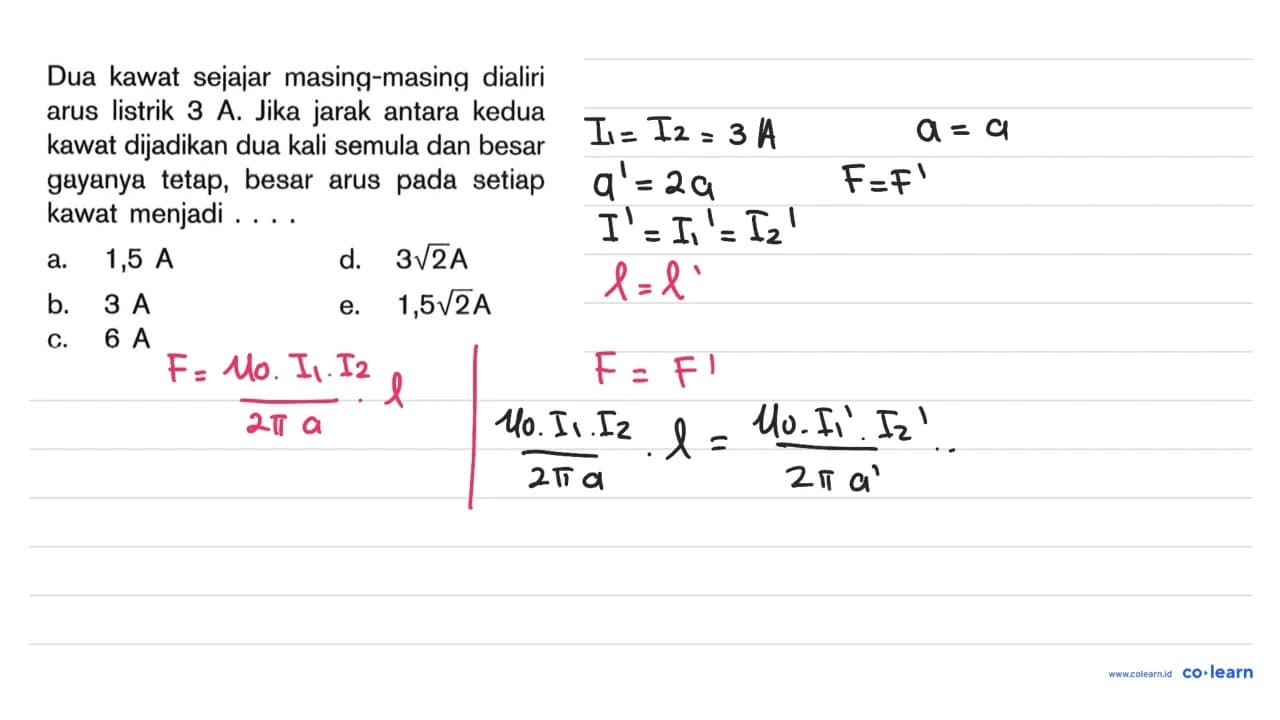 Dua kawat sejajar masing-masing dialiri
arus listrik 3 A. Jika jarak antara kedua
kawat dijadikan dua kali semula dan besar
gayanya tetap, besar arus pada setiap
kawat menjadi . . . .
a. 1,5 A
d. 3√2A
b. 3 A
e. 1,5√2A
c. 6 A
I₁ = I₂ = 3 A
a = a
a' = 2a
F = F'
I' = I₁' = I₂'
l = l'
F = μ0 . I₁ . I₂ / 2π a . l
F = F'
μ0 . I₁ . I₂ / 2π a . l = μ0 . I₁' . I₂' / 2π a' ..
www.colearn.id co·learn